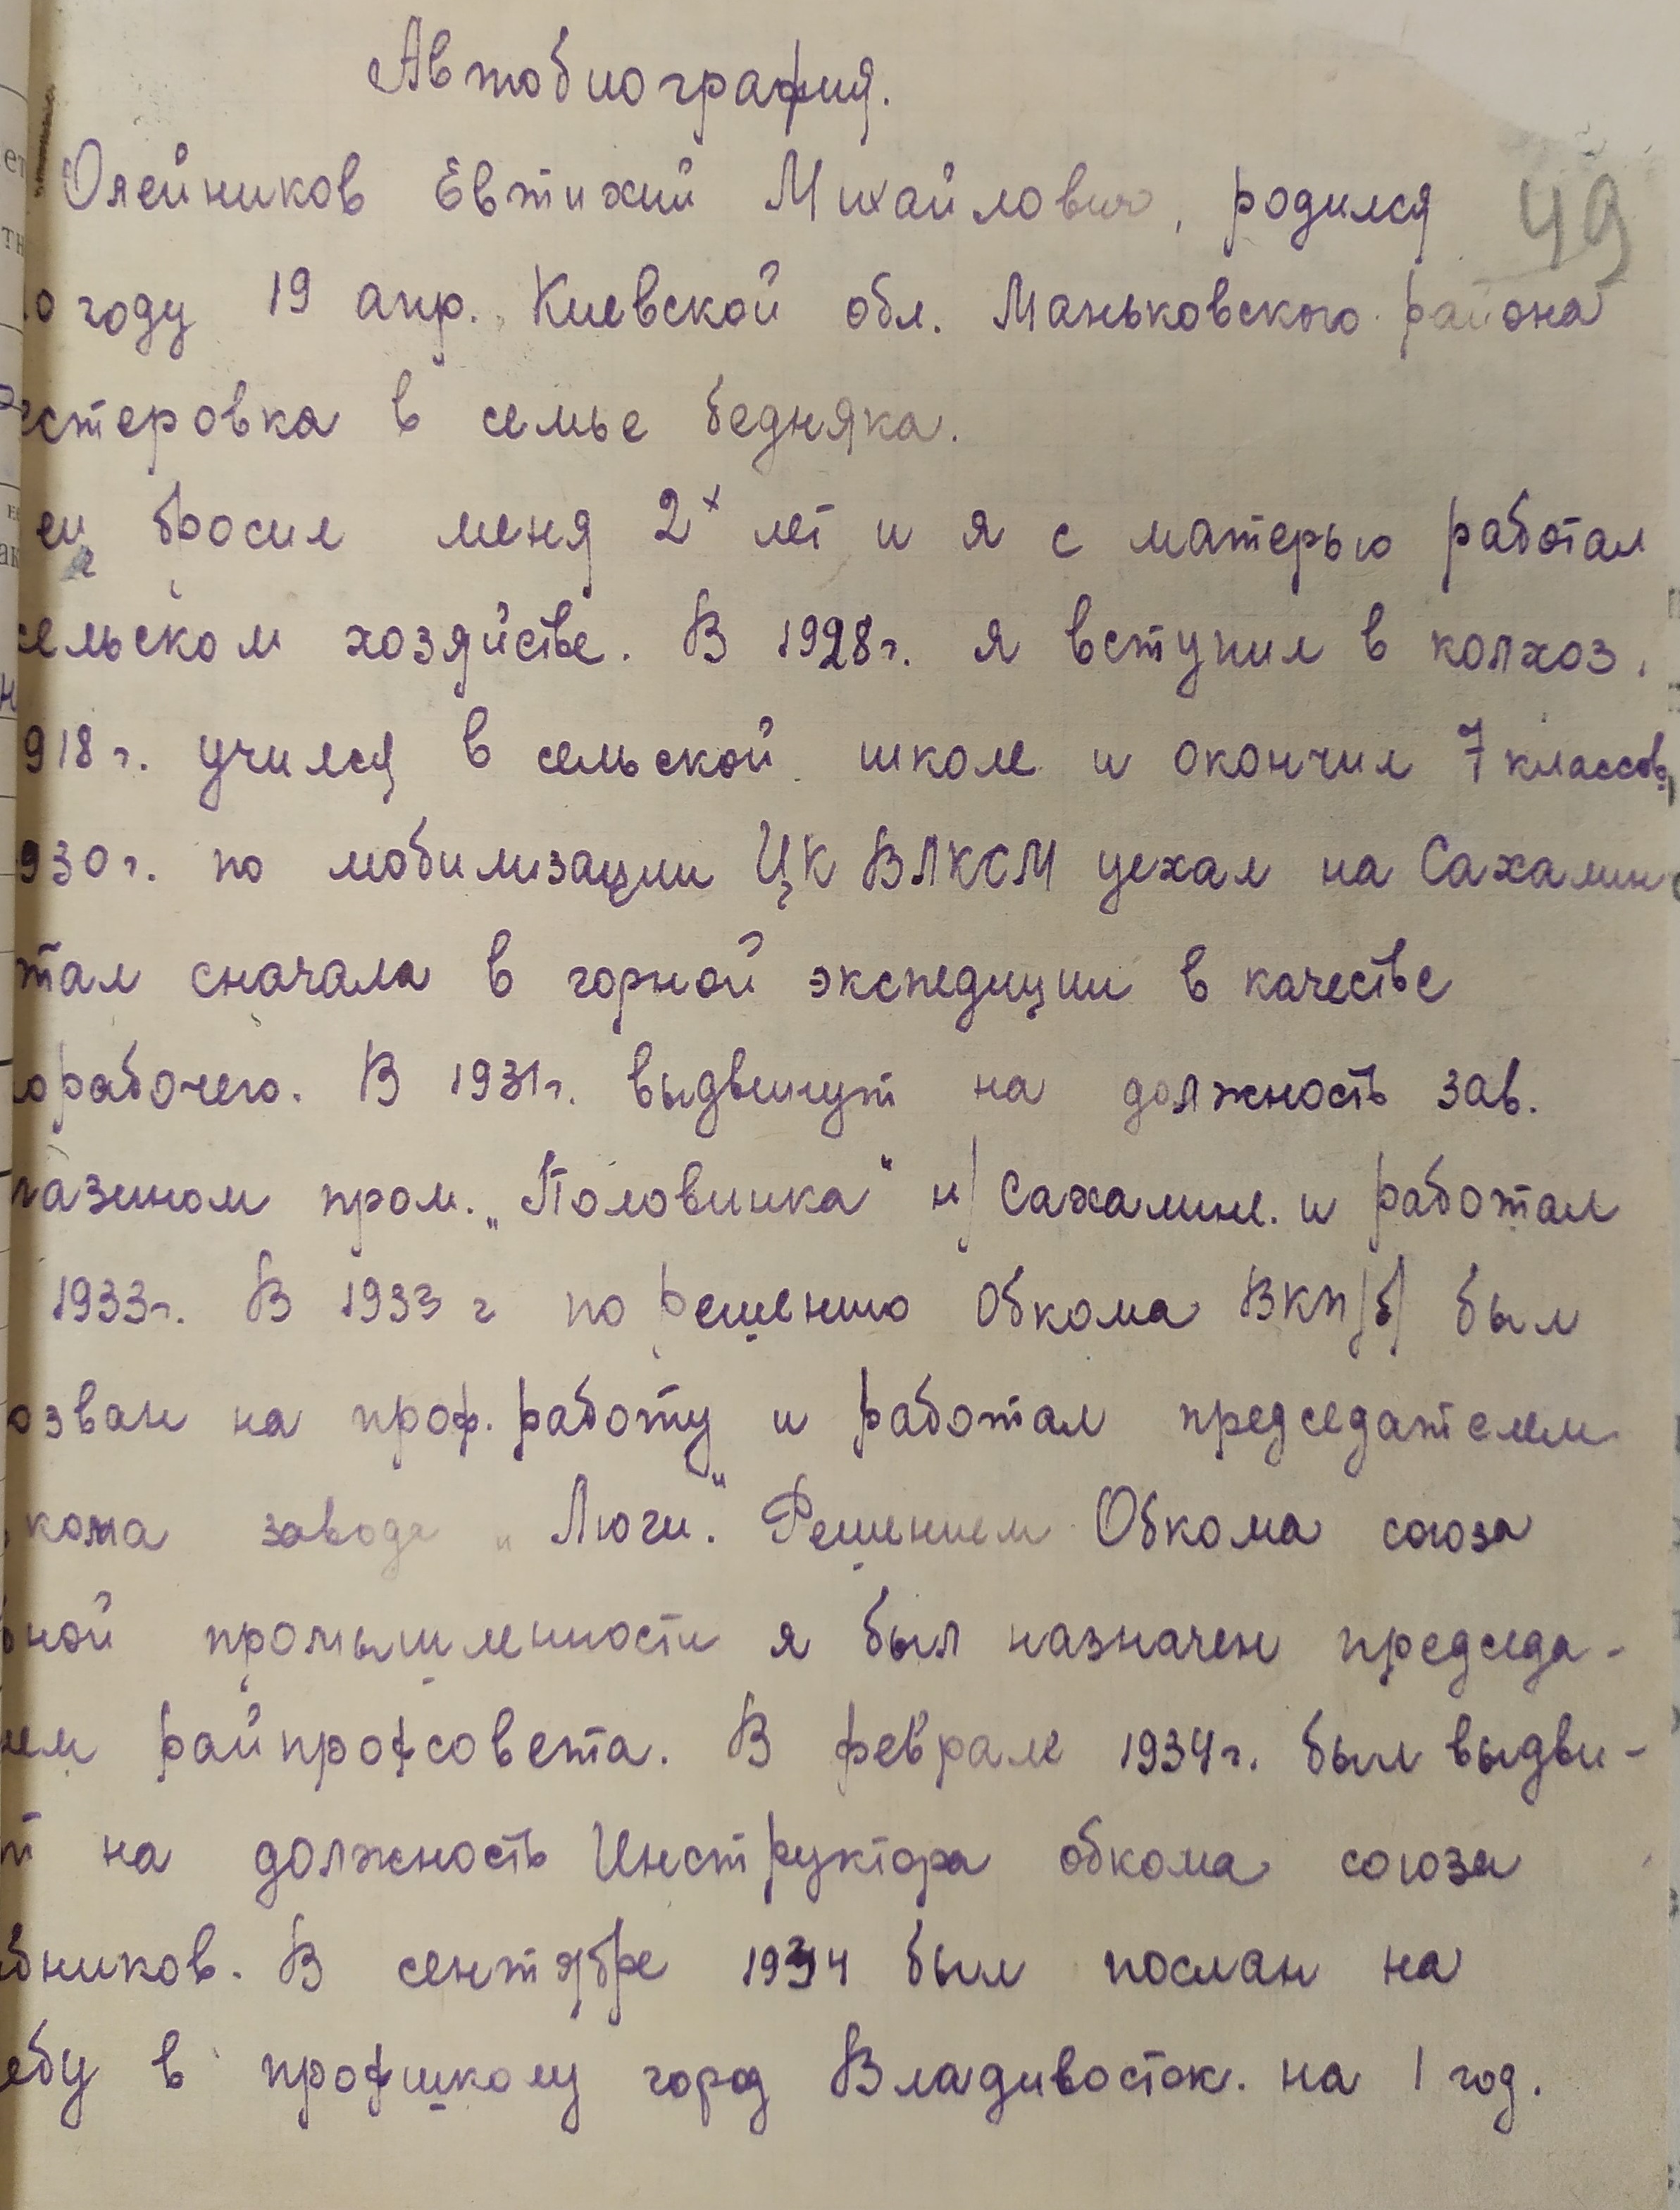 Автобиография.
Олейников Евтихий Михайлович, родился
49
0 году 19 апр. Киевской обл. Маньковского района
естеровка в семье бедняка.
ец бросил меня 2х лет и я с матерью работал
сельском хозяйстве. В 1928г. я вступил в колхоз.
918г. учился в сельской школе и окончил 7 классов,
930г. по мобилизации ЦК ВЛКСМ уехал на Сахалин
тал сначала в горной экспедиции в качестве
орабочего. В 1931г. выдвинут на должность зав.
газином пром. „Половинка" н/Сахалине. и работал
1933г. В 1933 г по решению Обкома ВКП/б/ был
озван на проф. работу и работал председателем
кома завода „Люги". Решением Обкома союза
ной промышленности я был назначен председа-
лем райпрофсовета. В феврале 1934г. был выдви-
т на должность Инструктора обкома союза
бников. В сентябре 1934 был послан на
ебу в профшколу город Владивосток. на 1 год.